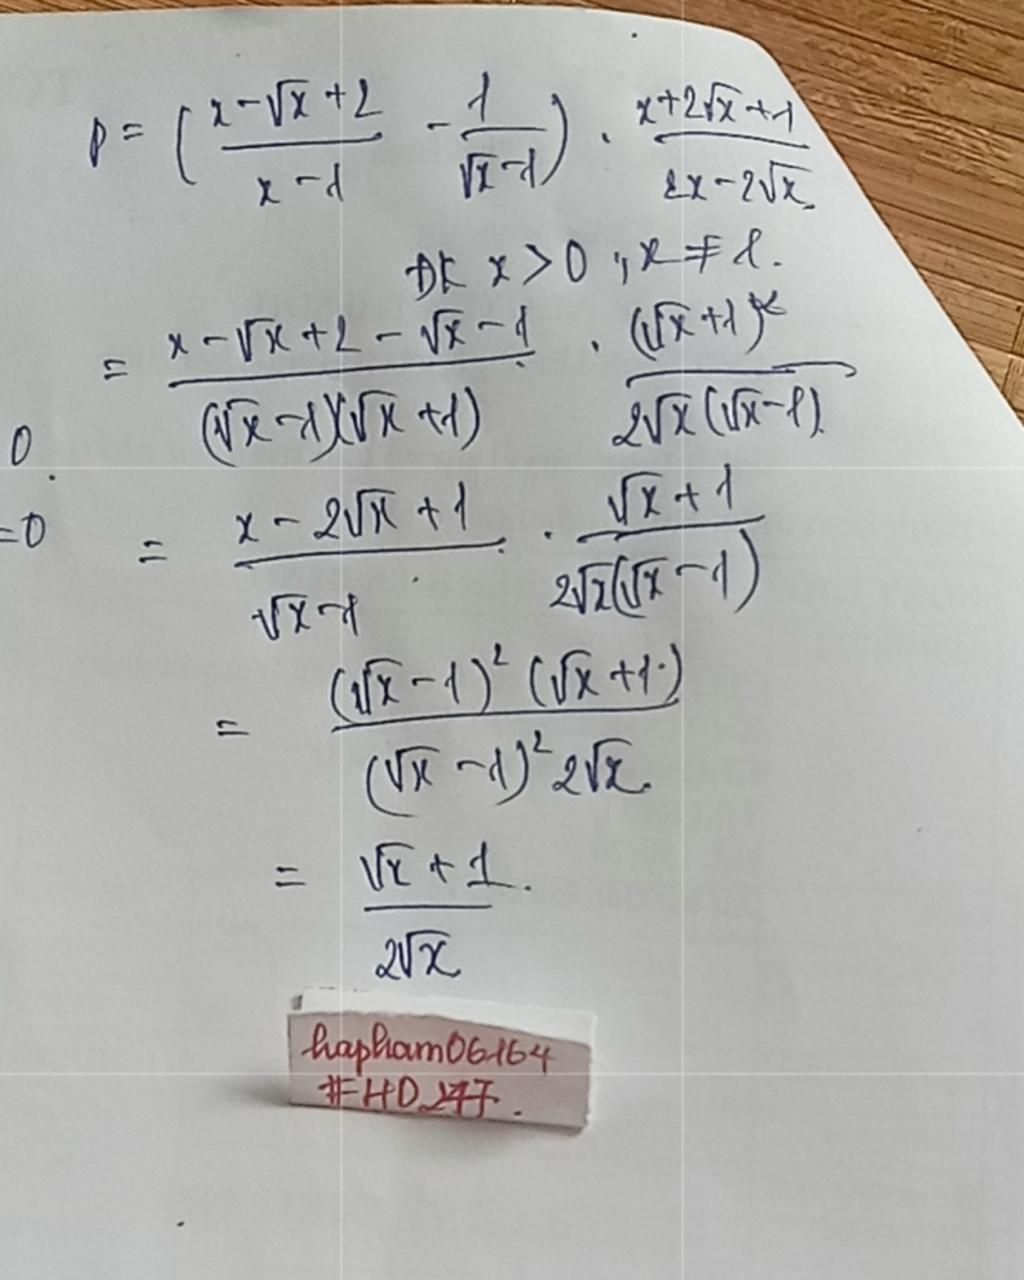 P = ( (x - √x + 2)/(x - 1) - 1/(√x - 1) ) . (x + 2√x + 1)/(2x - 2√x)
ĐK x > 0 ; x ≠ 1.
= (x - √x + 2 - √x - 1)/((√x - 1)(√x + 1)) . (√x + 1)²/(2√x(√x - 1))
0.
= (x - 2√x + 1)/(√x - 1) . (√x + 1)/(2√x(√x - 1))
=0
= ((√x - 1)² (√x + 1))/((√x - 1)² 2√x)
= (√x + 1)/(2√x)
hapham06164
#HD277.